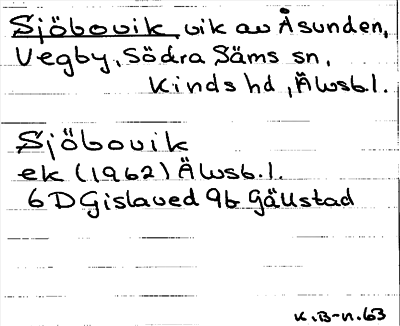 Sjöbovik, vik av Åsunden,
Vegby, Södra Säms sn,
Kinds hd, Älvsb.l.
Sjöbovik
ek (1962) Älvsb.l.
6D Gislaved 9b Gällstad
K.B-n.63